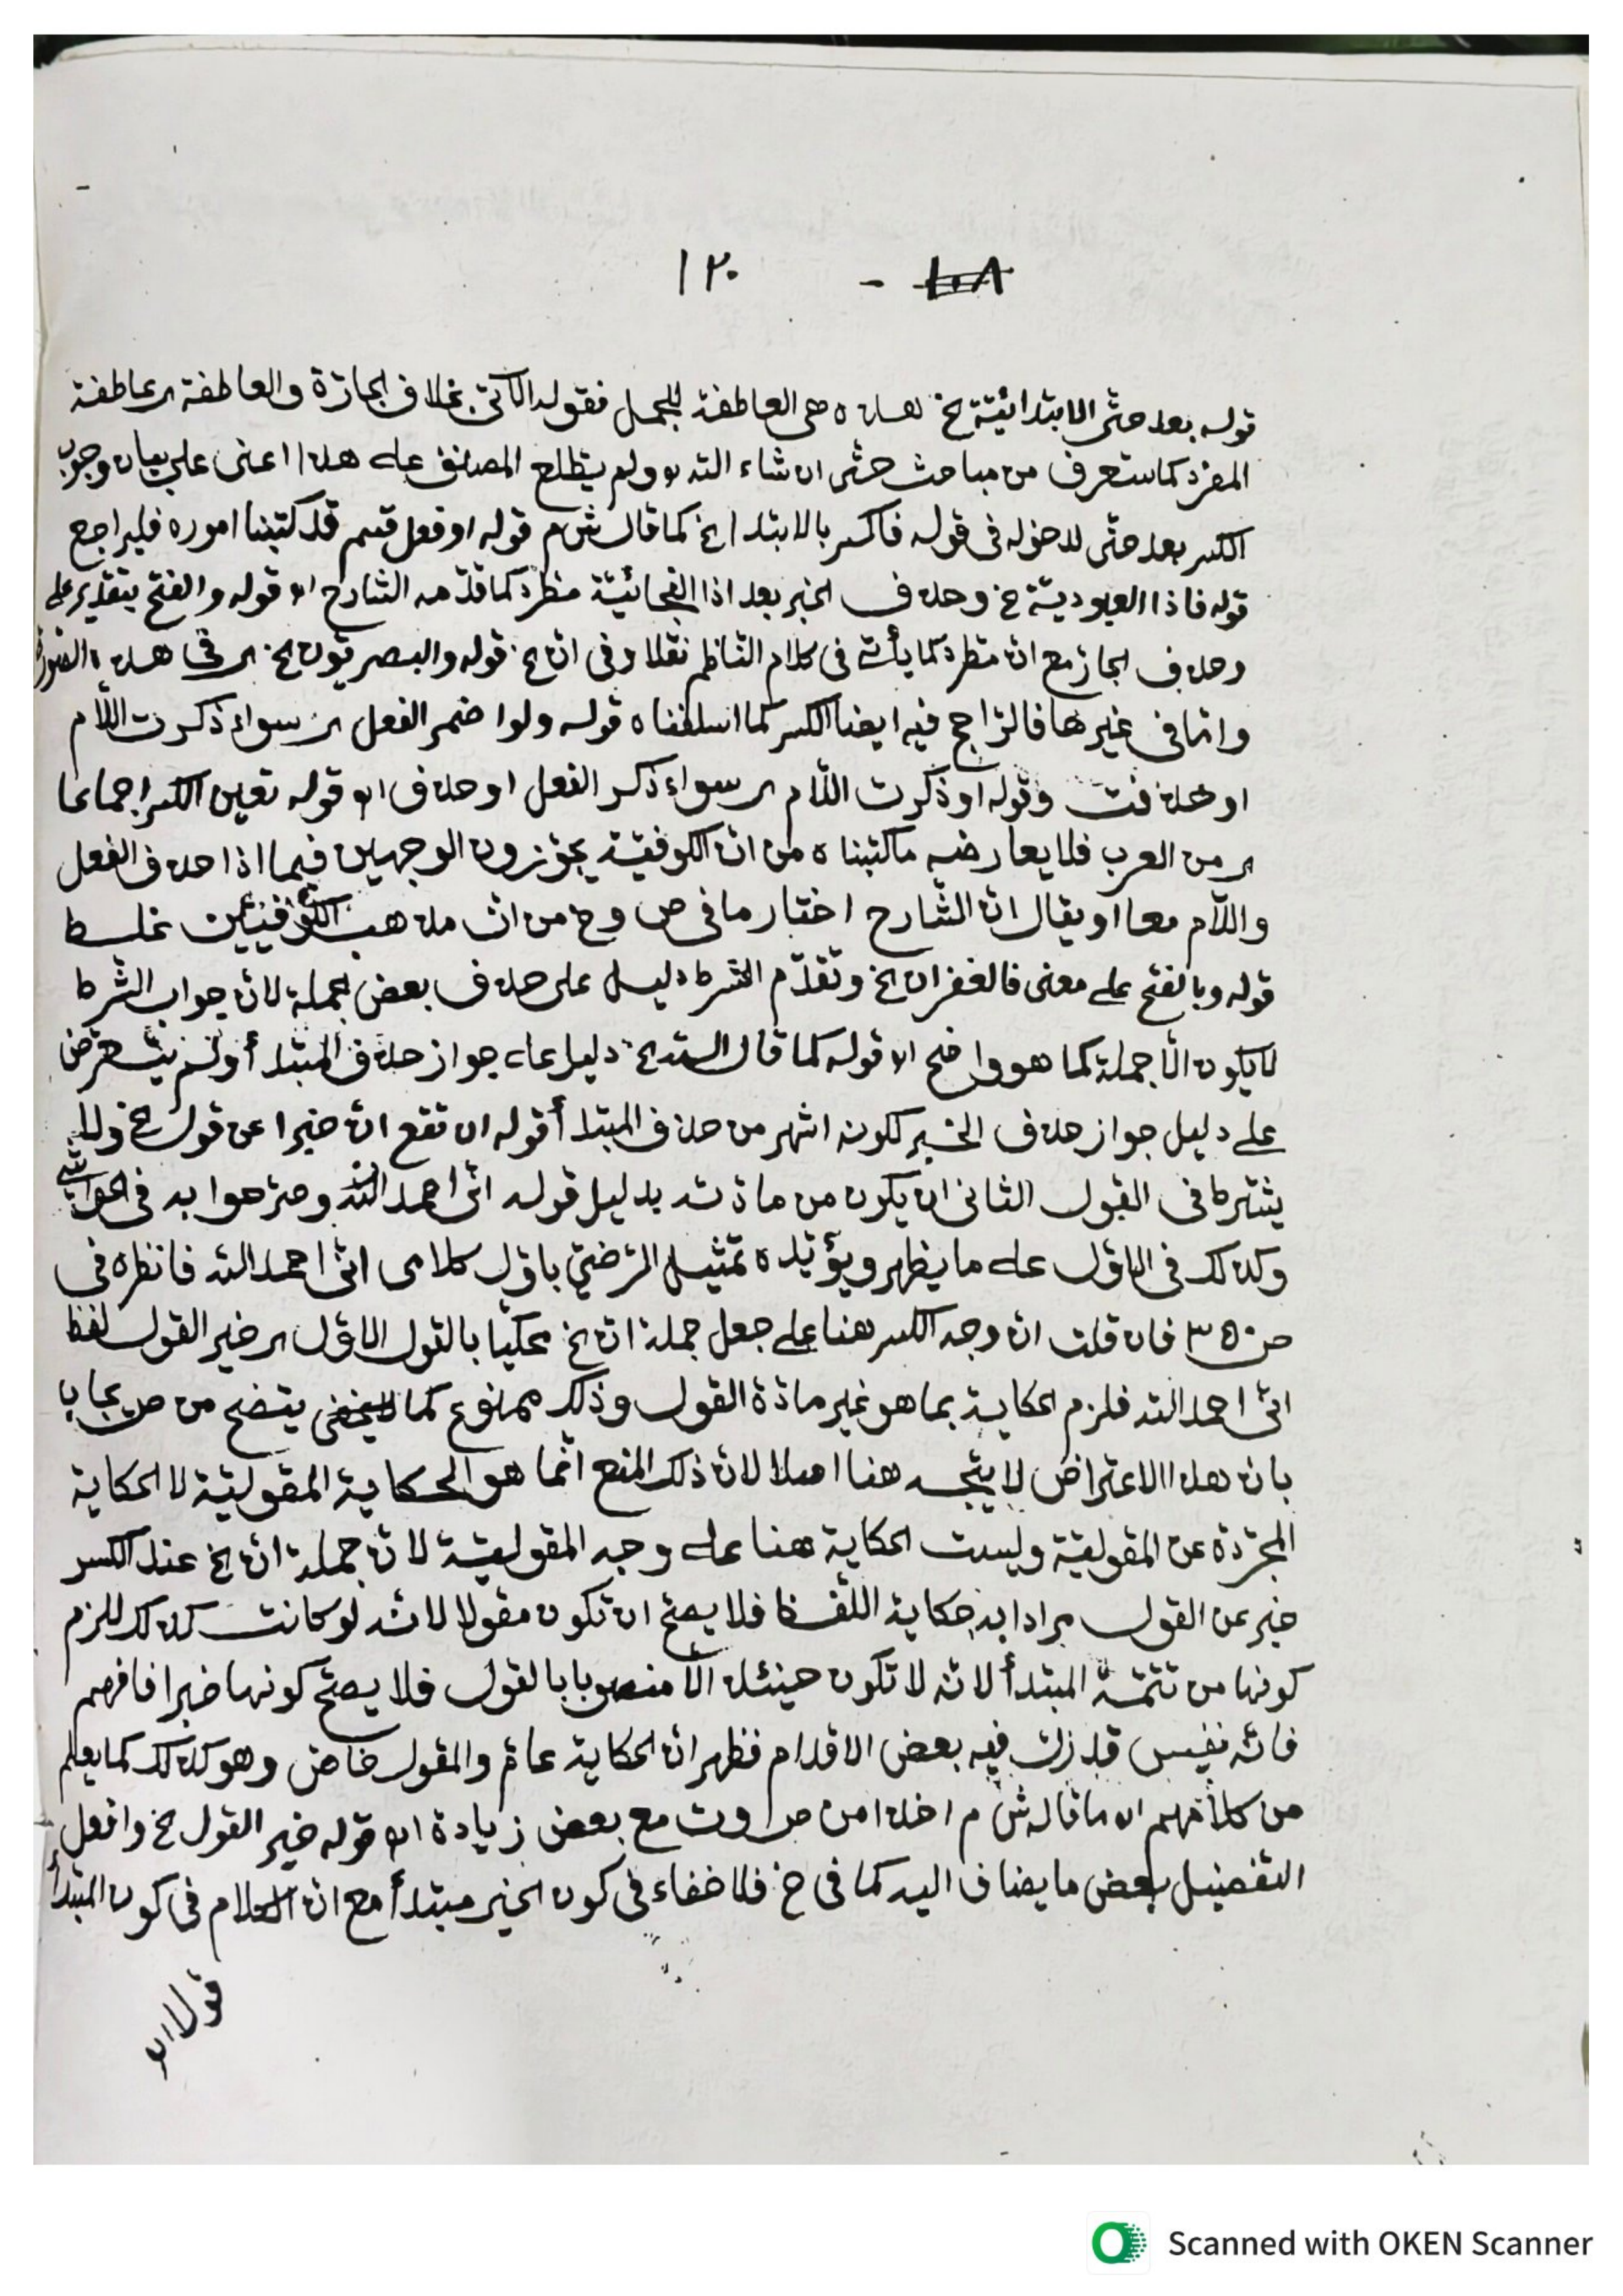 ١٠٨ - ١٢٠
قوله بعد حتى الابتدائيّة الخ هذه هى العاطفة للجمل فقوله الآتى بخلاف الجارّة والعاطفة اى عاطفة
المفرد كما ستعرف من مباحث حتّى ان شاء الله ولم يطّلع المصنف على هذا اعنى على بيان وجوب
الكسر بعد حتّى لدخوله فى قوله فاكسر بالابتدا الخ كما قال ش م قوله او فعل قسم قد كتبنا اموره فليراجع
قوله فاذا العبوديّة خ وحذف الخبر بعد اذا الفجائيّة مطّرد كما قدّمه الشارح اه قوله والفتح بتقدير على
وحذف الجار مع انّ مطّرد كما يأتى فى كلام الناظم نقلا وفى انّ الخ قوله والبصريّون الخ اى فى هذه الصورة
وامّا فى غيرها فالرّاجح فيه ايضا الكسر كما اسلفناه قوله ولو اضمر الفعل اى سواء ذكرت اللّام
او حذفت وقوله او ذكرت اللّام اى سواء ذكر الفعل او حذف اه قوله تعين الكسر اجماعا
اى من العرب فلا يعارضه ما كتبناه من انّ الكوفيّة يجوّزون الوجهين فيما اذا حذف الفعل
واللّام معا او يقال انّ الشّارح اختار ما فى ص وخ من انّ مذهب الكوفيّين غلط
قوله وبالفتح على معنى فالغفران الخ وتقدّم الشرط دليل على حذف بعض الجملة لانّ جواب الشّرط
لايكون الّا جملة كما هو واضح اه قوله كما قال الله الخ دليل على جواز حذف المبتدأ ولم يتعرّض
على دليل جواز حذف الخبر لكونه اشهر من حذف المبتدأ قوله ان تقع انّ خبرا عن قول الخ ولا
يشترط فى القول الثانى ان يكون من مادّته بدليل قوله انّى احمد الله وصرّحوا به فى الحواشى
وكذلك فى الاوّل على ما يظهر ويؤيّده تمثيل الرّضىّ باوّل كلامى انّى احمد الله فانظره فى
ص ٣٥٠ فان قلت انّ وجه الكسر هنا على جعل جملة انّ الخ محكيّا بالقول الاوّل اى خير القول لفظ
انّى احمد الله فلزم الحكاية بما هو غير مادّة القول وذلك ممنوع كما يتضح من ص يجاب
بانّ هذا الاعتراض لا يتّجه هنا اصلا لانّ ذلك المنع انّما هو الحكاية المقوليّة لا الحكاية
المجرّدة عن المقوليّة وليست الحكاية هنا على وجه المقوليّة لانّ جملة انّ الخ عند الكسر
خبر عن القول مرادا به حكاية اللّفظ فلا يصحّ ان تكون مقولا لانّه لو كانت كذلك للزم
كونها من تتمّة المبتدأ لانّه لا تكون حينئذ الّا منصوبا بالقول فلا يصحّ كونها خبرا فافهم
فانّه نفيس قد زلّت فيه بعض الاقدام فظهر انّ الحكاية عامّ والمقول خاصّ وهو كذلك كما يعلم
من كلامهم اه ما قاله ش م اخذا من ص وت مع بعض زيادة اه قوله خير القول الخ وافعل
التفضيل بعض ما يضاف اليه كما فى خ فلا خفاء فى كون الخير مبتدأ مع انّ الكلام فى كون المبتدأ
قولا اه
Scanned with OKEN Scanner